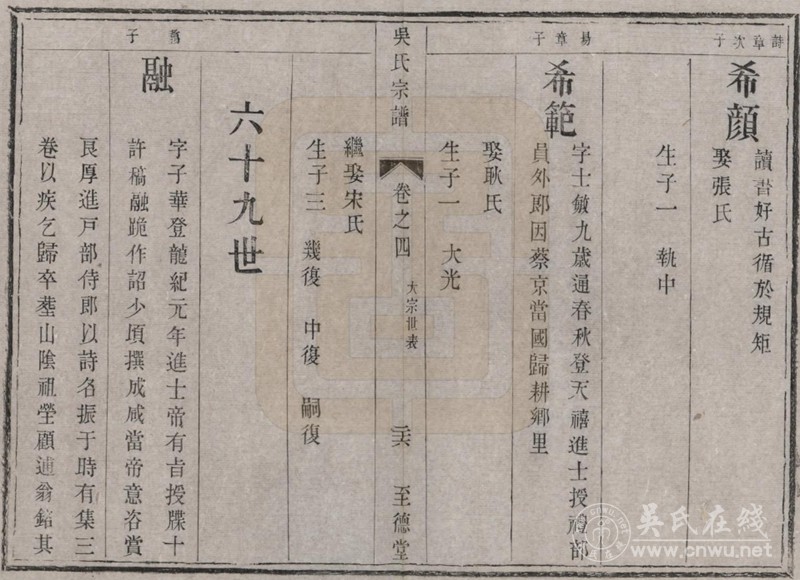 詩章次子
希顏
讀書好古循於規矩
娶張氏
生子一　執中
易章子
希範
字士敏九歲通春秋登天禧進士授禮部
員外郎因蔡京當國歸耕鄉里
娶耿氏
生子一　大光
吳氏宗譜
卷之四
大宗世表
至德堂
繼娶宋氏
生子三　幾復　中復　嗣復
六十九世
子
融
字子華登龍紀元年進士帝有旨授牒十
許稿融跪作詔少頃撰成咸當帝意咨賞
良厚進戸部侍郎以詩名振于時有集三
卷以疾乞歸卒塟山陰祖塋顧逋翁銘其
吴氏在线
www.cnwu.net